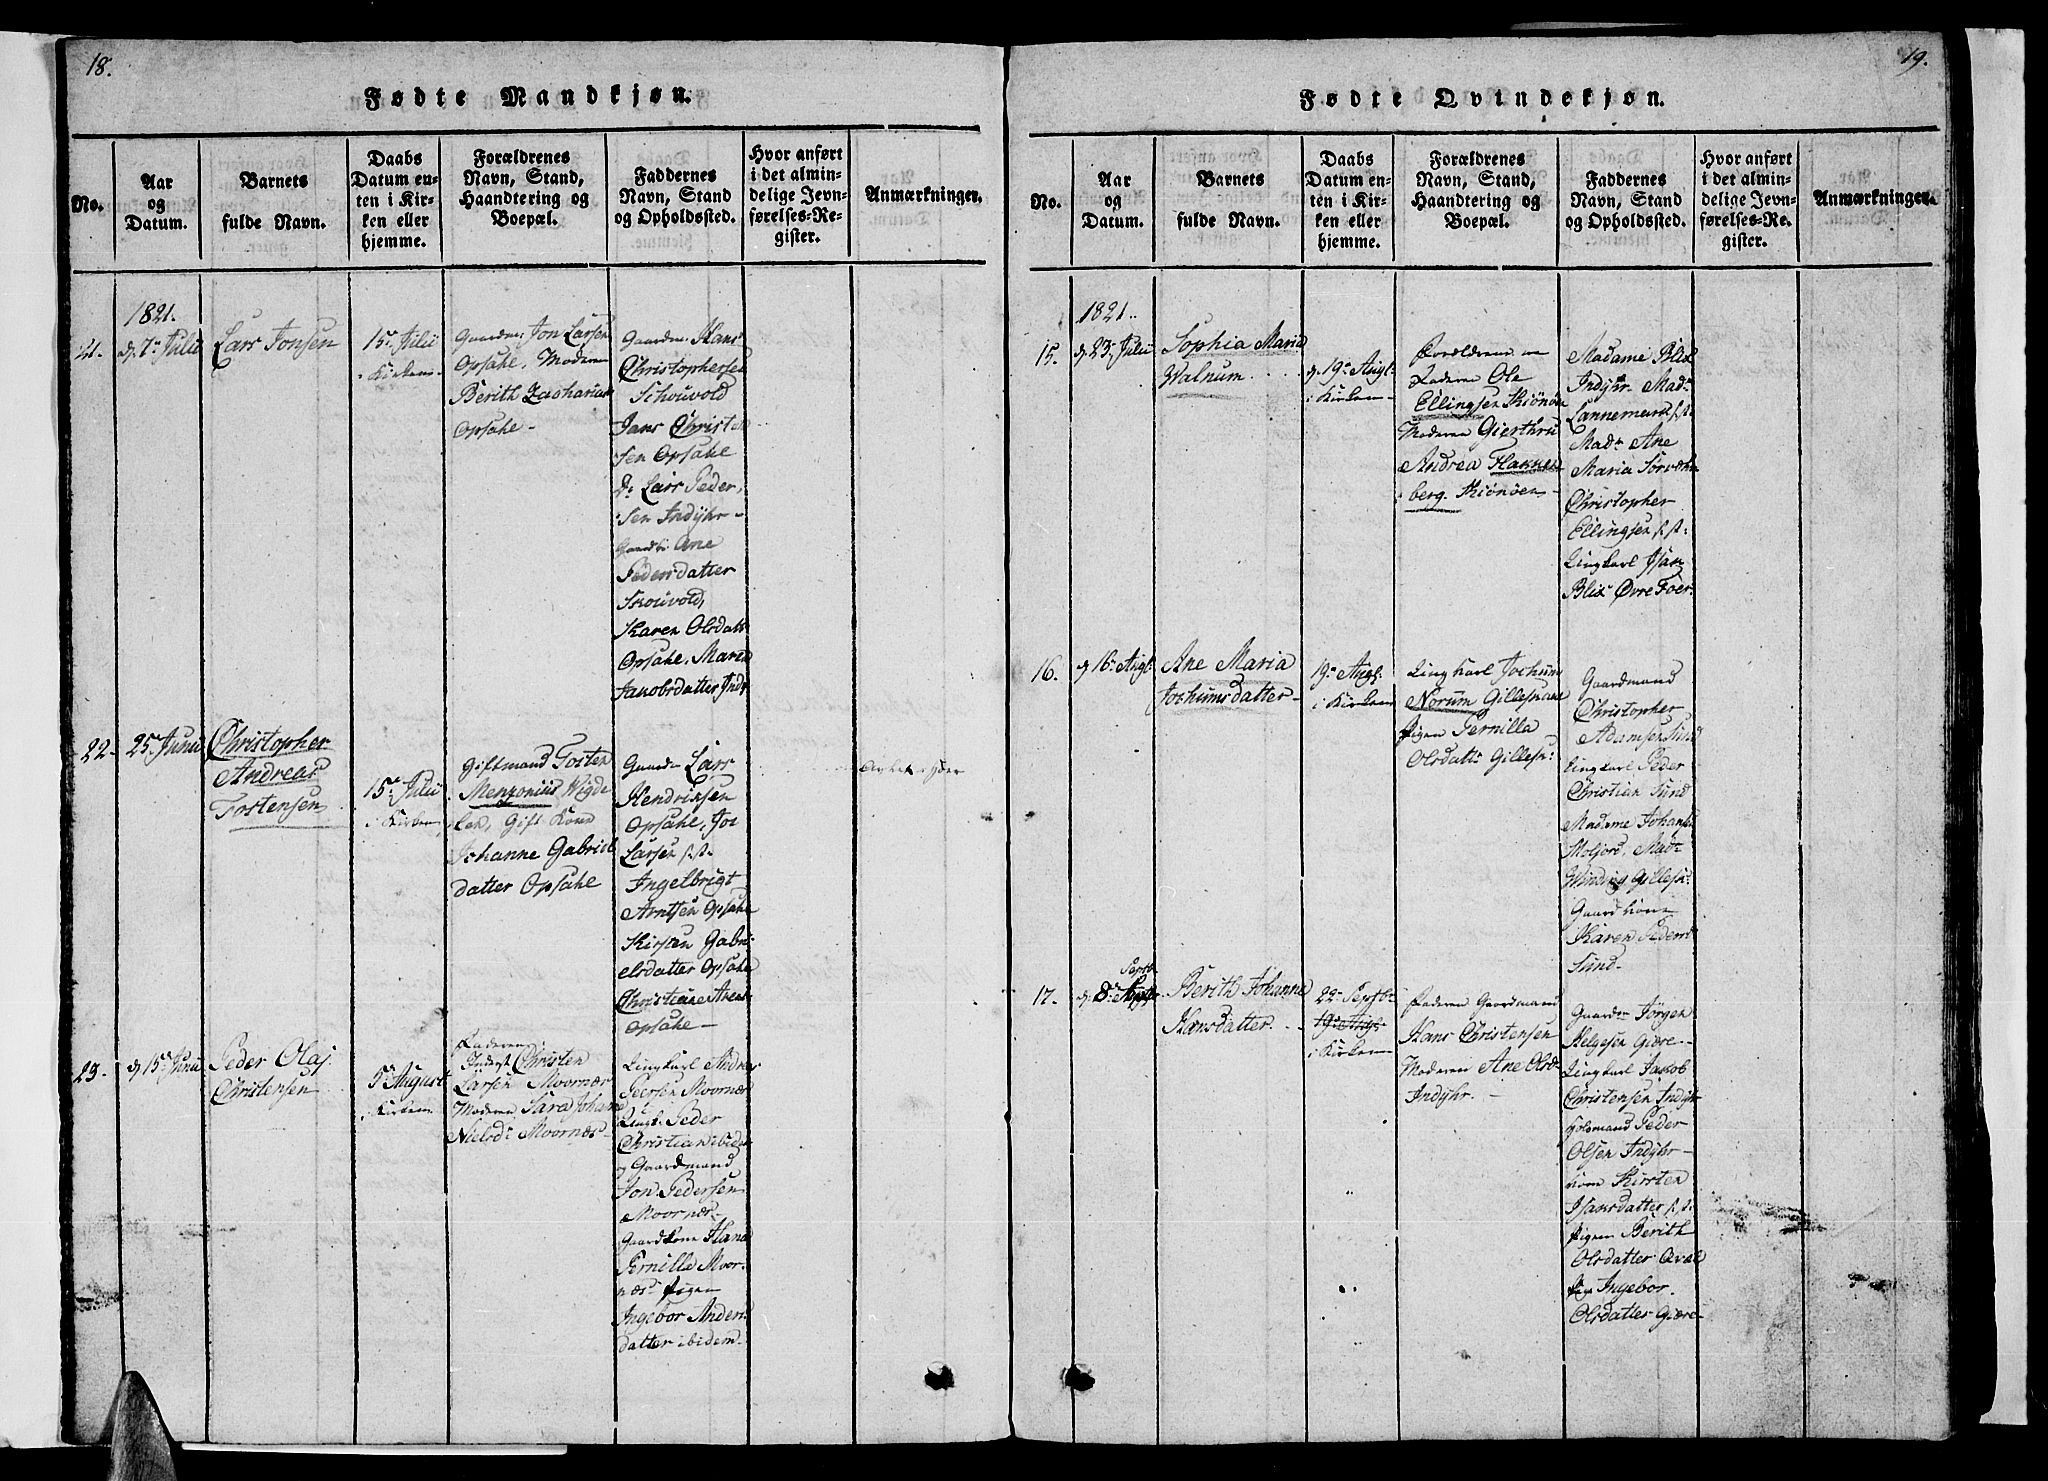 18.
Fødte Mandkjøn.
No.
Aar
og
Datum.
Barnets
fulde Navn.
Daabs
Datum en-
ten i Kir-
ken eller
hjemme.
Forældrenes
Navn, Stand,
Haandtering og
Boepæl.
Faddernes
Navn, Stand
og Opholdssted.
Hvor anført
i det almin-
delige Jevn-
førelses-Re-
gister.
Anmærkninger.
21.
1821.
d. 7. Julii
Lars Jonsen
15. Julii
i Kirken
Jon Larsen
Opsahe, Moderen
Berith Zacharias
Opsahe-
Hans
Christophersen
Schouvold
Jans Christen
sen Opsahe
Lars Peder
sen Indyhr-
Ane
Pedersdatter
Skouvold,
Karen Olsdatt
Opsahe, Maren
Jakobsdatter Indr
22-
25. Junii
Christopher
Andreas
Tostensen
15. Julii
i Kirken
Giftmand Tosten
Menzoniis Vigde
len, Gift Kone
Johanne Gabriels
datter Opsahe
Lars
Hendriksen
Opsahe, Jon
Larsen s. st.
Ingelbrigt
Arntsen Opsahe
Kirsten Gabri-
elsdatter Opsahe
Christiane Arent
Opsahe-
23-
d. 15. Junii
Peder Olaj
Christensen
5. August
i Kirken
Faderen
Inderst Christen
Larsen Moornæs
Moderen Sara Johanne
Nielsd: Moornæs-
Ungkarl Andreas
Peersen Moornæs
Ungk. Peder
Christian ibide
og Gaardmand
Jon Pedersen
Moornæs-
Gaardkone Hana
Pernilla Moor-
næs Pigen
Ingebor Anders
datter ibidem-
19.
Fødte Qvindekjøn.
No.
Aar
og
Datum.
Barnets
fulde Navn.
Daabs
Datum en-
ten i Kir-
ken eller
hjemme.
Forældrenes
Navn, Stand,
Haandtering og
Boepæl.
Faddernes
Navn, Stand
og Opholdssted.
Hvor anført
i det almin-
delige Jevn-
førelses-Re-
gister.
Anmærkninger.
15.
1821.
d. 23. Julii
Sophia Maria
Walnum
d. 19. Augl.
i Kirken-
Forældrene
Faderen Ole
Ellingsen Skiönöen
Moderen Gierthru
Andrea Flakken
berg. Skiönöen-
Madame Blix
Indyhr. Mad.
Lannemark s. st.
Mad. Ane
Maria
Christopher
Ellingsen s. st.
Ungkarl Isak
Blix Øvre Foer.
16.
d. 16. Augl.
Ane Maria
Jochumsdatter-
19. Augl.
i Kirken
Ungkarl Jochum
Norum Gillesk
Pigen Pernilla
Olsdatt: Gillesk:
Gaardmand
Christopher
Adamsen Sund
Ungkarl Peder
Christian Sund
Madame Johans
Moljord, Mad.
Winding Gillesk:
Gaardkone
Karen Peders
Sund-
17.
Septb.
d. 8.
Berith Johanna
Hansdatter.
22. Septbr
19. Augl.
i Kirken
Faderen Gaardmand
Hans Christensen
Moderen Ane Olsd.
Indyhr. -
Jörgen
Helgesen Giære-
Ungkarl Jakob
Christensen Indyh
Peder
Olsen Indyhr-
Kone Kirsten
Isaksdatter s. st.
Pigen Berith
Olsdatter Qval
Pige Ingebor
Olsdatter Giære-